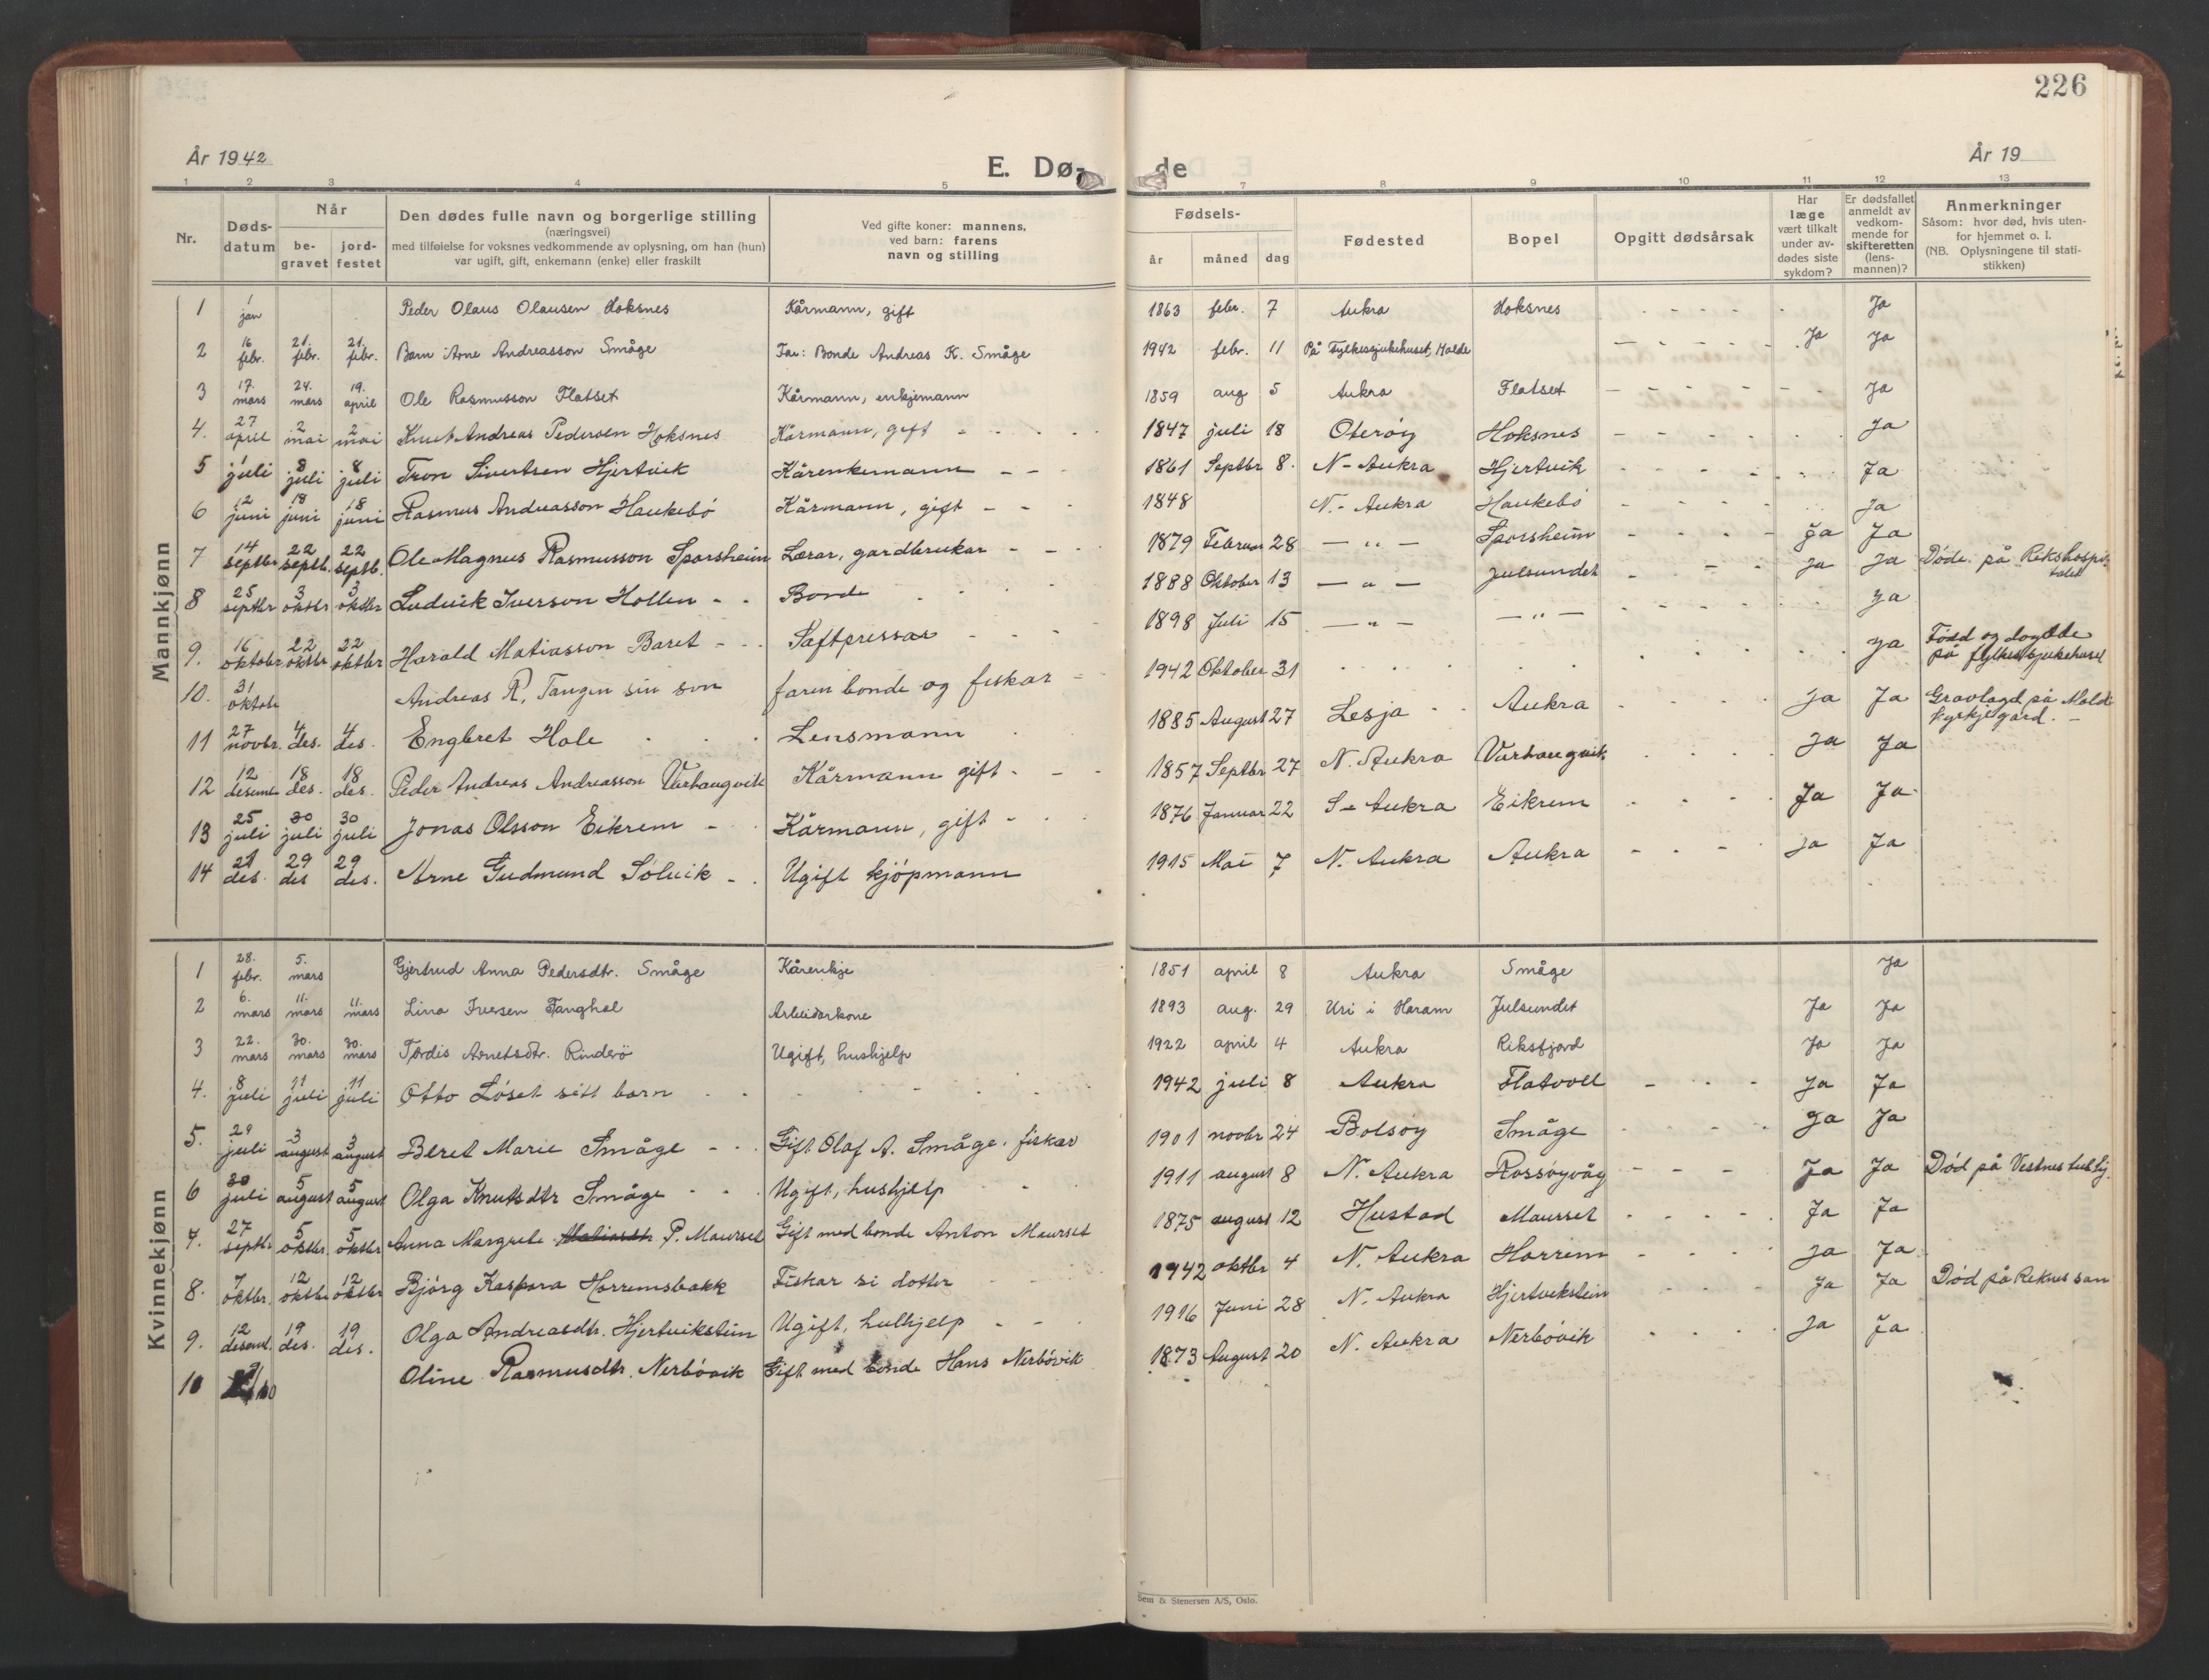 226
År 1942
E. Dø-
de
År 19
1 2 3 4 5 7 8 9 10 11 12 13
Nr.
Døds-
datum
Når
be-
gravet
jord-
festet
Den dødes fulle navn og borgerlige stilling
(næringsvei)
med tilføielse for voksnes vedkommende av oplysning, om han (hun)
var ugift, gift, enkemann (enke) eller fraskilt
Ved gifte koner: mannens,
ved barn: farens
navn og stilling
Fødsels-
år måned dag
Fødested
Bopel
Opgitt dødsårsak
Har
læge
vært tilkalt
under av-
dødes siste
sykdom?
Er dødsfallet
anmeldt av
vedkom-
mende for
skifteretten
(lens-
mannen)?
Anmerkninger
Såsom: hvor død, hvis uten-
for hjemmet o. l.
(NB. Oplysningene til stati-
stikken)
Mannkjønn
1 1 jan Peder Olaus Olausen Hoksnes Kårmann, gift 1863 febr. 7 Aukra Hoksnes Ja
2 16 febr. 21. febr. 21. febr. Barn Arne Andreasson Småge Far: Bonde Andreas K. Småge 1942 febr. 11 På Fylkessjukehuset, Molde Ja Ja
3 17. mars 24. mars 19. april Ole Rasmusson Flatset Kårmann, enkjemann 1859 aug 5 Aukra Flatset Ja
4. 27 april 2 mai 2 mai Knut Andreas Pedersen Hoksnes Kårmann, gift 1847 juli 18 Oterøy Hoksnes Ja
5 1 juli 8 juli 8 juli Tron Sivertsen Hjertvik Kårenkemann 1861 Septbr 8. N-Aukra Hjertvik Ja
6 12 juni 18 juni 18 juni Rasmus Andreasson Haukebø Kårmann, gift 1848 N.-Aukra Haukebø Ja
7 14 septbr 22 septb. 22 septb. Ole Magnus Rasmusson Sporsheim Lærar, gardbrukar 1879 Februar 28 — „ — Sporsheim Ja Ja
8 25 septbr 3 oktbr 3 oktbr Ludvik Iverson Hollen Bonde 1888 Oktober 13 — „ — Julsundet Ja Ja Døde på Rikshospi-
talet
9. 16 oktober 22 oktbr 22 oktbr Harald Matiasson Baret Saftpressar 1898 Juli 15 — „ — — „ — Ja
10. 31 oktob Andreas R. Tangen sin son faren bonde og fiskar 1942 Oktober 31 Ja Fødd og døydde
på fylkessjukehuset
11 27 novbr. 4 des. 4 des. Engbret Hole Lensmann 1885 August 27 Lesja Aukra Ja Ja Gravlagd på Molde
kyrkjegard.
12 12 desemb 18 des. 18 des. Peder Andreas Andreasson Varhaugvik Kårmann gift 1857 Septbr 27 N. Aukra Varhaugvik Ja Ja
13 25 juli 30 juli 30 juli Jonas Olsson Eikrem Kårmann, gift 1876 Januar 22 S-Aukra Eikrem Ja Ja
14 21 des. 29 des 29 des. Arne Gudmund Sølvik Ugift kjøpmann 1915 Mai 7 N. Aukra Aukra Ja Ja
Kvinnekjønn
1 28. febr. 5. mars Gjertrud Anna Pedersdtr. Småge Kårenkje 1851 april 8 Aukra Småge Ja
2 6. mars 11. mars 11. mars Lina Iversen Tanghol Arbeidarkone 1893 aug. 29 Uri i Haram Julsundet Ja Ja
3 22. mars 30. mars 30. mars Tordis Arnetsdtr. Rinderö Ugift, hushjelp 1922 april 4 Aukra Riksfjord Ja Ja
4. 8 juli 11 juli 11 juli Otto Løset sitt barn 1942 juli 8 Aukra Flatvoll Ja Ja
5. 29 juli 3 august 3 august Beret Marie Småge Gift Olaf A. Småge, fiskar 1901 novbr 24 Bolsøy Småge Ja Ja
6 30 juli 5 august 5 august Olga Knutsdtr Småge Ugift, hushjelp 1911 august 8 N. Aukra Rossøyvåg Ja Ja Død på Vestnes
7. 27 septbr 5 oktbr. 5 oktbr Anna Margrete P. Maurset Gift med bonde Anton Maurset 1875 august 12 Hustad Maurset Ja Ja
8. 7 oktbr. 12 oktbr 12 oktbr Bjørg Kaspara Harremsbakk Fiskar si dotter 1942 oktbr 4 N. Aukra Harrem Ja Ja
9. 12 desemb. 19 des. 19 des. Olga Andreasdtr. Hjertvikstein Ugift, hushjelp 1916 Juni 28 N. Aukra Hjertvikstein Ja Ja Død på Reknes san
10 Oline Rasmusdtr. Nerbøvik Gift med bonde Hans Nerbøvik 1873 August 20 N. Aukra Nerbøvik Ja Ja
Sem & Stenersen A/S, Oslo.